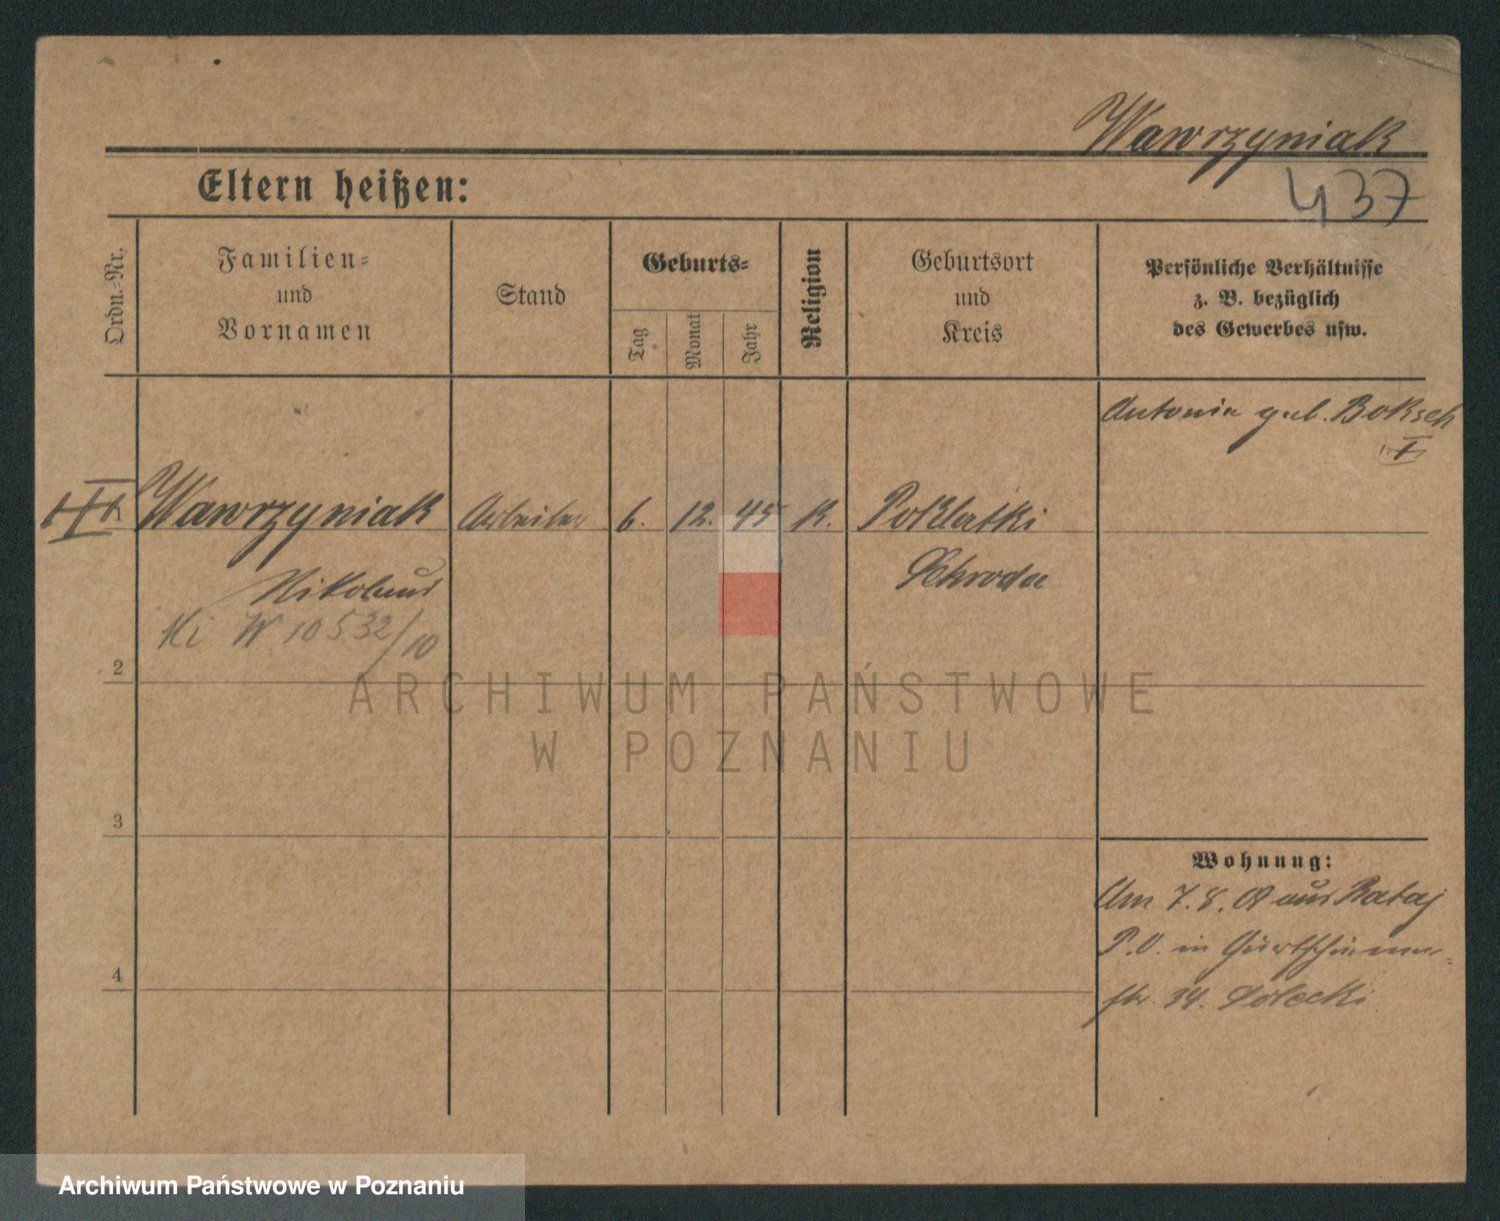 Wawrzyniak
Eltern heißen:
437
Ordn.-Nr.
Familien-
und
Vornamen
Stand
Geburts-
Tag
Monat
Jahr
Religion
Geburtsort
und
Kreis
Persönliche Verhältnisse
z. B. bezüglich
des Gewerbes usw.
Antonia geb. Boksch
I
Wawrzyniak Arbeiter 6. 12. 45 K. Poklatki
Nikolaus Schroda
W 10532/10
2
ARCHIWUM PAŃSTWOWE
W POZNANIU
3
Wohnung:
Am 7.8.08 aus Rataj
P.O. in
4
str. 14. Solecki
Archiwum Państwowe w Poznaniu